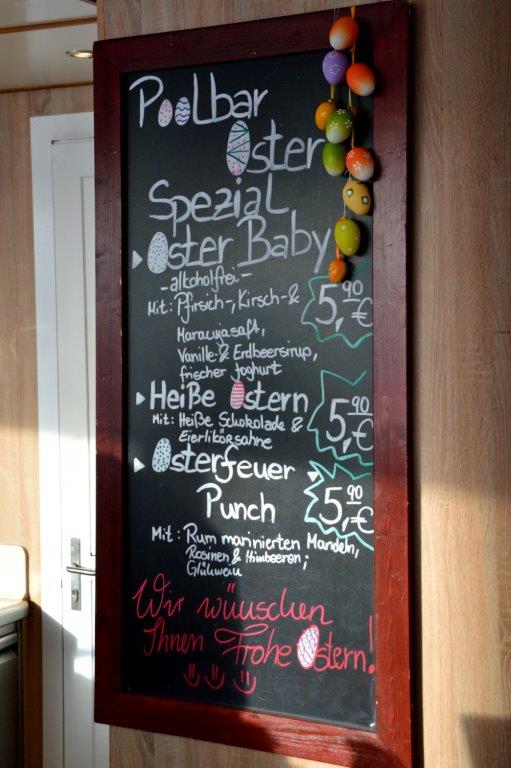 Poolbar
Oster
Spezial
Oster Baby
-alkoholfrei-
Mit: Pfirsich-, Kirsch-&
Maracujasaft,
Vanille-& Erdbeersirup,
frischer Joghurt
5,90€
Heiße Ostern
Mit: Heiße Schokolade &
Eierlikörsahne
5,90€
Osterfeuer
Punch
5,90€
Mit: Rum marinierten Mandeln,
Rosinen & Himbeeren,
Glühwein
Wir wünschen
Ihnen Frohe Ostern!